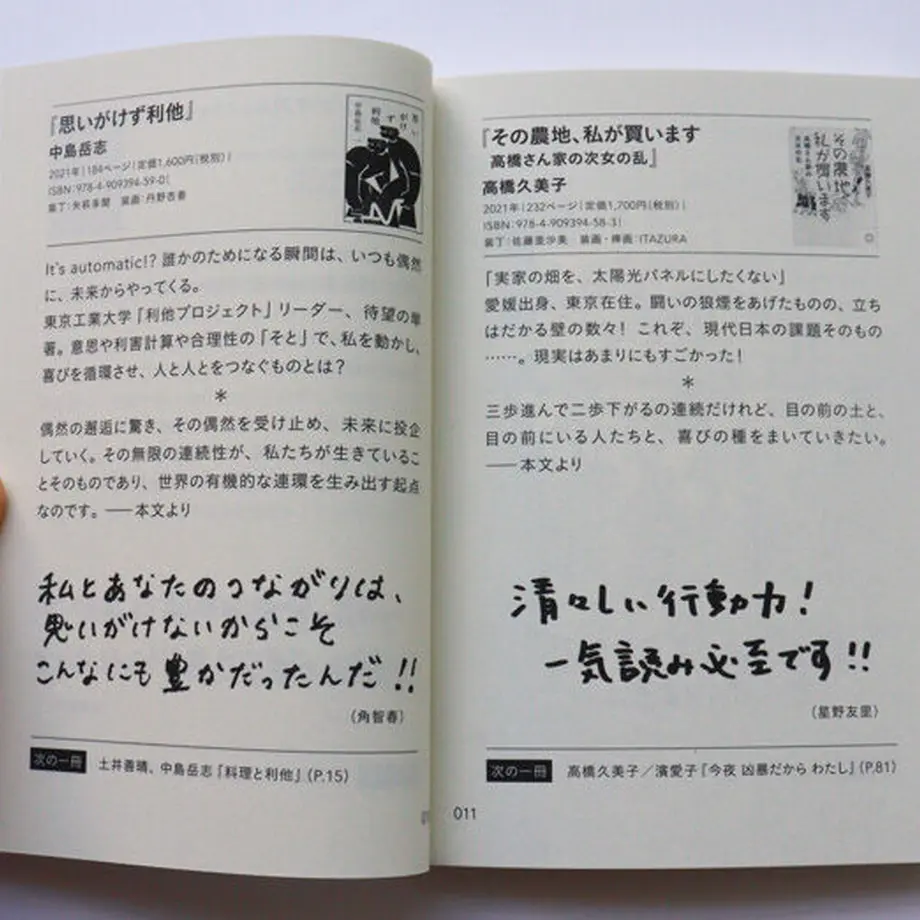 『思いがけず利他』
中島岳志
2021年|184ページ|定価1,600円(税別)|
ISBN:978-4-909394-59-0|
装丁:矢萩多聞 装画:丹野杏香
思いがけず利他
中島岳志
It's automatic!? 誰かのためになる瞬間は、いつも偶然
に、未来からやってくる。
東京工業大学「利他プロジェクト」リーダー、待望の単
著。意思や利害計算や合理性の「そと」で、私を動かし、
喜びを循環させ、人と人とをつなぐものとは?
*
偶然の邂逅に驚き、その偶然を受け止め、未来に投企
していく。その無限の連続性が、私たちが生きているこ
とそのものであり、世界の有機的な連環を生み出す起点
なのです。——本文より
私とあなたのつながりは、
思いがけないからこそ
こんなにも豊かだったんだ!!
(角智春)
次の一冊 土井善晴、中島岳志『料理と利他』(P.15)
『その農地、私が買います
高橋さん家の次女の乱』
高橋久美子
2021年|232ページ|定価1,700円(税別)|
ISBN:978-4-909394-58-3|
装丁:佐藤亜沙美 装画・挿画:ITAZURA
その農地、
私が買います
高橋さん家の
次女の乱
「実家の畑を、太陽光パネルにしたくない」
愛媛出身、東京在住。闘いの狼煙をあげたものの、立ち
はだかる壁の数々! これぞ、現代日本の課題そのもの
……。現実はあまりにもすごかった!
*
三歩進んで二歩下がるの連続だけれど、目の前の土と、
目の前にいる人たちと、喜びの種をまいていきたい。
——本文より
清々しい行動力!
一気読み必至です!!
(星野友里)
次の一冊 高橋久美子/濱愛子『今夜 凶暴だから わたし』(P.81)
011